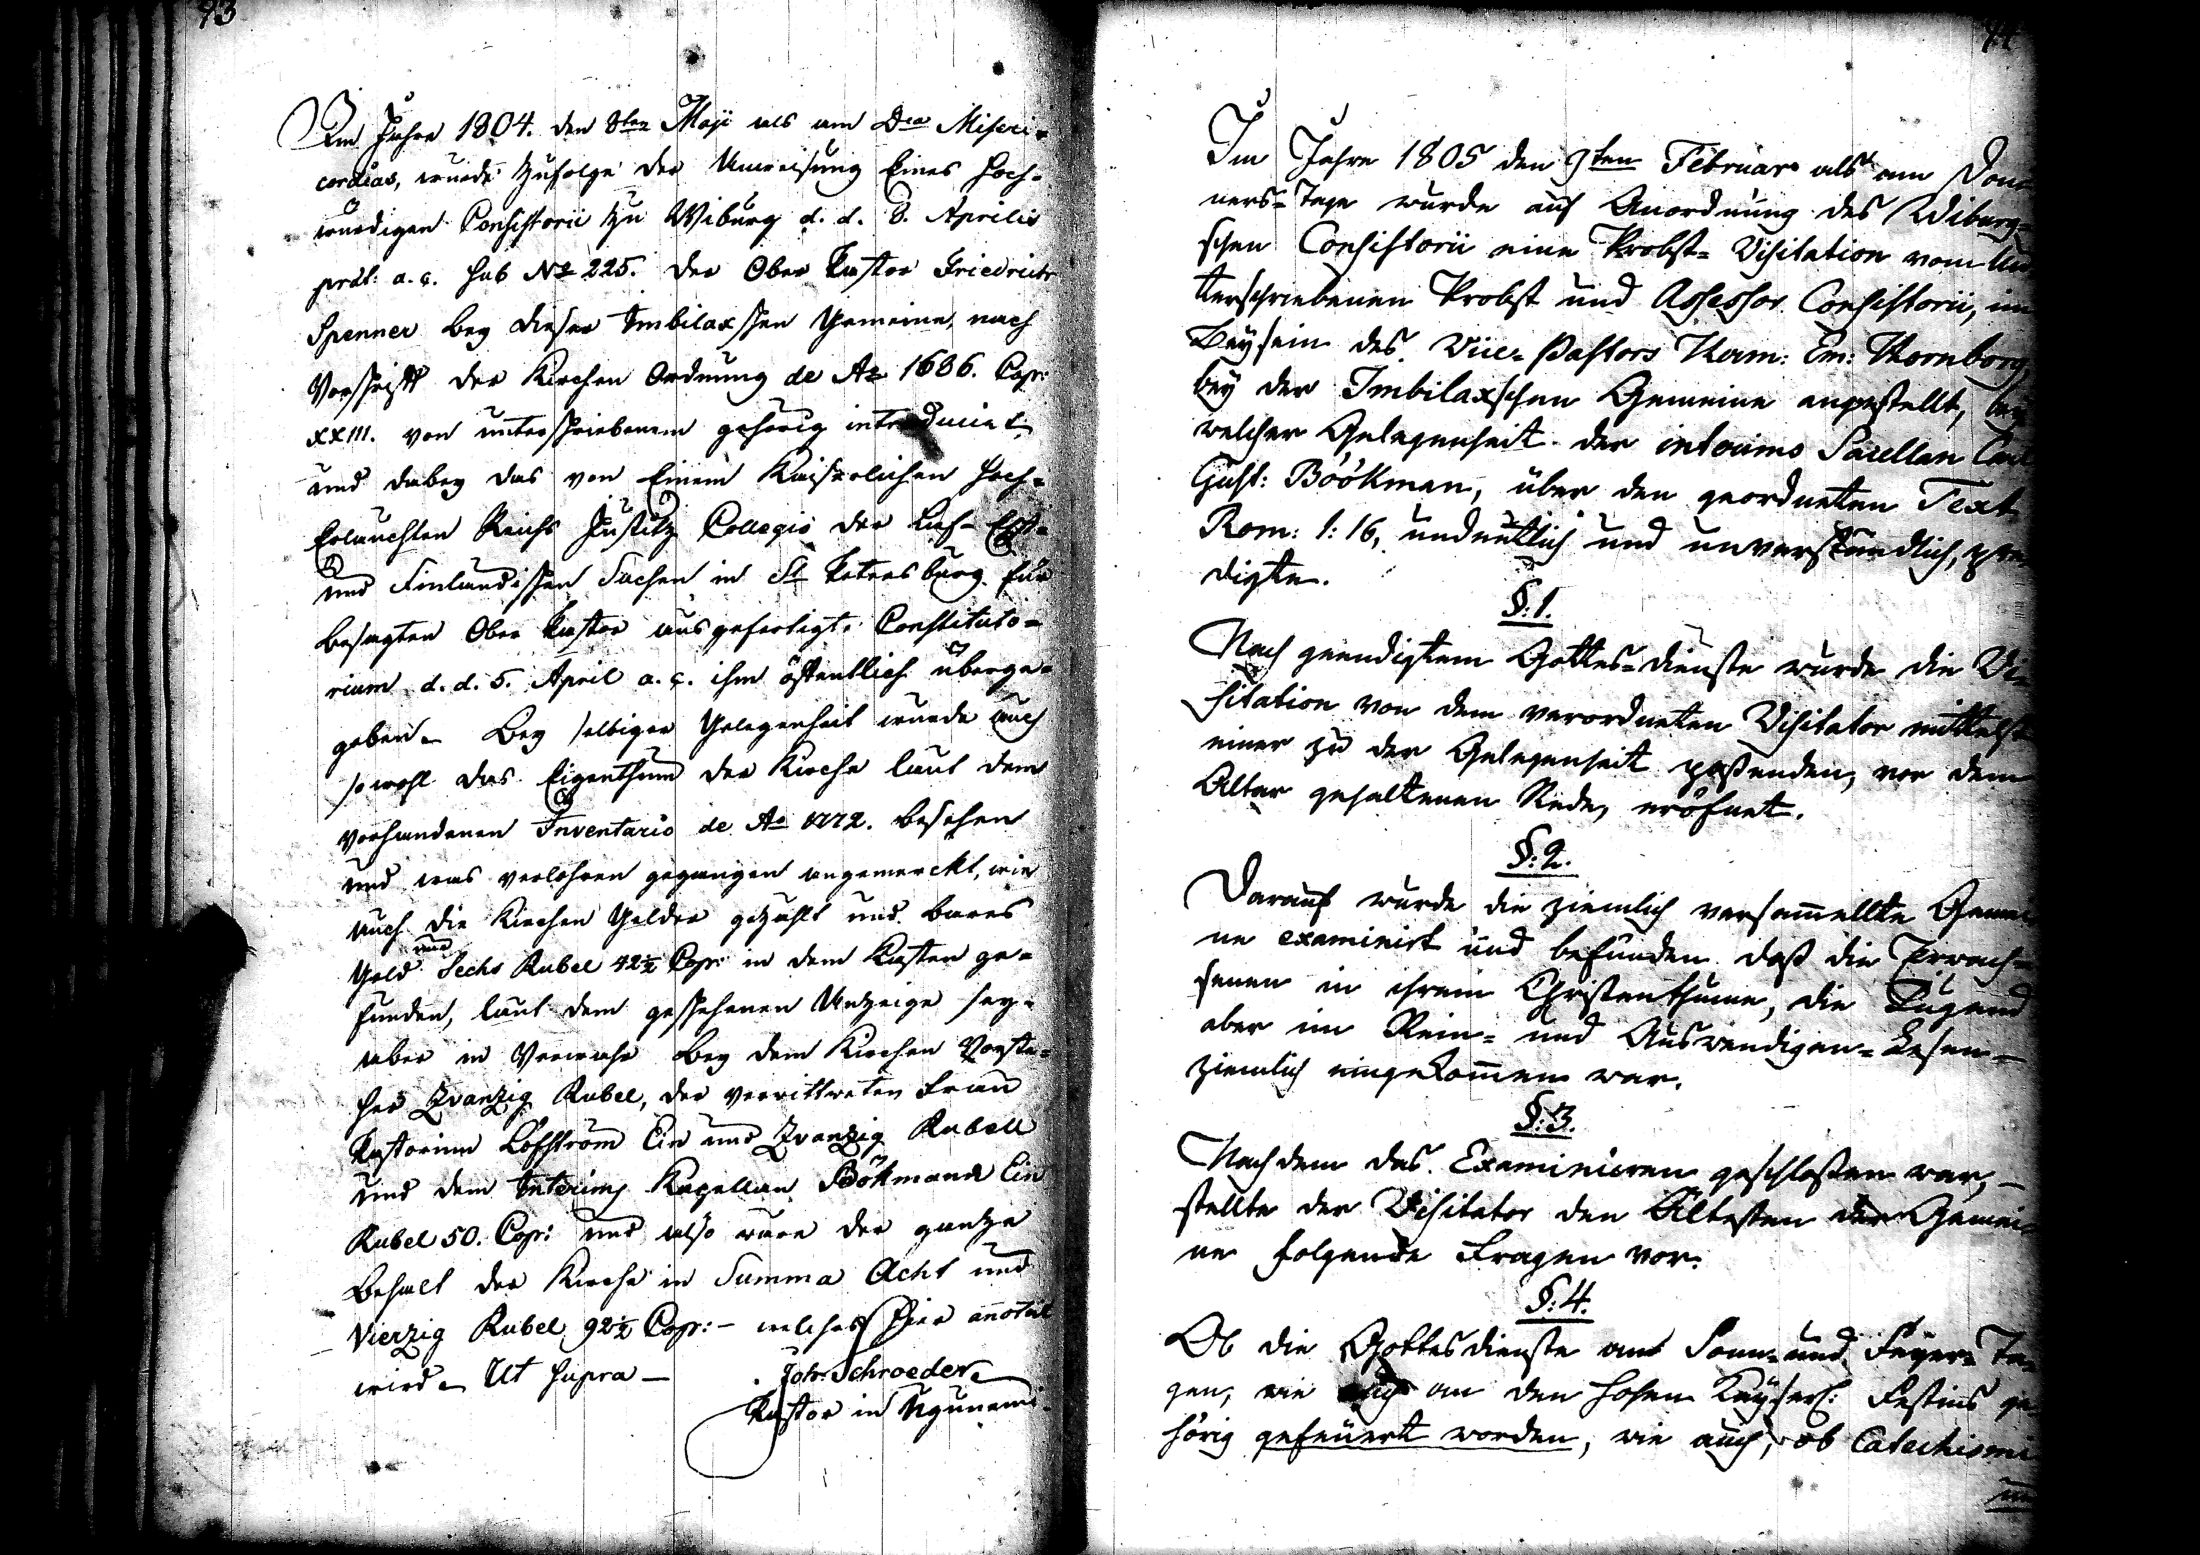 93
Im Jahre 1804. den 8ten Maji als am Dca Miseri=
cordias, wurde zufolge der Anweisung Eines Hoch=
würdigen Consistorii zu Wiburg d. d. 8. Aprilis
prdt: a. c. sub No 225. der Ober Pastor Friedrich
Spenner bey dieser Imbilaxschen Gemeine, nach
Vorschrift der Kirchen Ordnung de Ao 1686. Cap:
XXIII. von unterschriebenem gehörig introduciret
und dabey das von Einem Kaiserlichen Hoch=
Erlauchten Reichs Justitz Collegio der Lief- Esth=
und Finländischen Sachen in St Petersburg für
besagten Ober Pastor ausgefertigte Constituto=
rium d. d. 5. April a. c. ihm öffentlich überge=
geben. Bey selbiger Gelegenheit wurde auch
sowohl das Eigenthum der Kirche laut dem
vorhandenen Inventario de Ao 1772. besehen
und was verlohren gegangen angemerckt, wie
auch die Kirchen Gelder gezählt und bares
Geld nur Sechs Rubel 42½ Cop: in dem Kasten ge=
funden, laut dem geschehenen Anzeige sey=
aber in Verwahr bey dem Kirchen Vorste=
her Zvanzig Rubel, der verwittweten Frau
Pastorinn Löfström Ein und Zvanzig Rubell
und dem Interims Kapellan Bökmann Ein
Rubel 50. Cop: und also ware der gantze
Behalt der Kirche in Summa Acht und
Vierzig Rubel 92½ Cop:- welches hier annotirt
wird. Ut supra —
Joh: Schroeder
Pastor in Kyúnemi.
94
Im Jahre 1805 den 9ten Februar als am Don=
ners=Tage wurde auf Anordnung des Wiburg=
schen Consistorii eine Probst= Visitation vom Un
terschriebenen Probst und Assessor Consistorii, im
Beysein des Vice-Pastors Herm: Em: Thornborg,
bey der Imbilaxschen Gemeine angestellt, bey
welcher Gelegenheit der interims Sacellan Carl
Gust: Böökman, über den geordneten Text
Rom: 1: 16, undeutlich und unverständlich, pre=
digte.
§: 1.
Nach geendigtem Gottes=dienste wurde die Vi=
sitation von dem verordneten Visitator mittelst
einer zu der Gelegenheit passenden, vor dem
Altar gehaltenen Rede, eröfnet.
§: 2.
Darauf wurde die ziemlich versammellte Gemei
ne examinirt und befunden daß die Erwach=
senen in ihrem Christenthume, die Jugend
aber im Rein= und Auswendigen=Lesen=
ziemlich eingekommen war.
§: 3.
Nachdem das Examinieren geschlossen war, —
stellte der Visitator den Ältesten der Gemei=
ne folgende Fragen vor.
§: 4.
Ob die Gottesdienste am Sonn= und Feyer=Ta=
gen, wie auch an den hohen Kayserl: Festins ge=
hörig gefeiert worden, wie auch, ob Catechismi
und